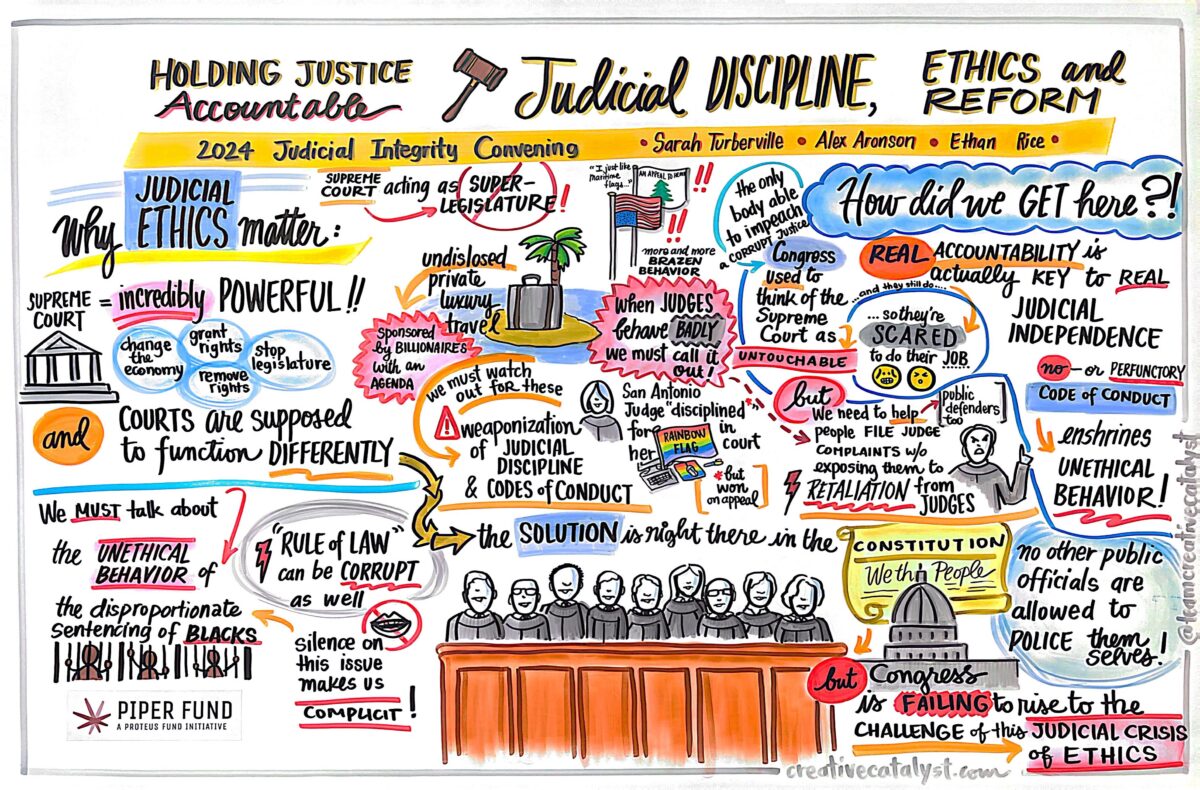 HOLDING JUSTICE
Accountable
Judicial DISCIPLINE,
ETHICS and
REFORM
2024 Judicial Integrity Convening
• Sarah Turberville • Alex Aronson • Ethan Rice •
Why JUDICIAL
ETHICS matter:
SUPREME
COURT = incredibly POWERFUL!!
change
the
economy
grant
rights
remove
rights
stop
legislature
and COURTS are supposed
to function DIFFERENTLY
We MUST talk about
the UNETHICAL
BEHAVIOR of
the disproportionate
sentencing of BLACKS
"RULE of LAW"
can be CORRUPT
as well
silence on
this issue
makes us
COMPLICIT!
PIPER FUND
A PROTEUS FUND INITIATIVE
SUPREME
COURT acting as SUPER-
LEGISLATURE!
undislosed
private
luxury
travel
sponsored
by BILLIONAIRES
with an
AGENDA
we must watch
out for these
weaponization
of JUDICIAL
DISCIPLINE
& CODES of CONDUCT
"I just like
maritime
flags..."
AN APPEAL TO HEAVEN
!!
!!
more and more
BRAZEN
BEHAVIOR
when JUDGES
behave BADLY
we must call it
out!
San Antonio
Judge "disciplined"*
for
her
RAINBOW
FLAG
in
court
*but
won
on appeal
the only
body able
to impeach
a CORRUPT Justice
Congress
used to
think of the
Supreme
Court as
UNTOUCHABLE
...and they still do...
...so they're
SCARED
to do their JOB
but
We need to help
people FILE JUDGE
COMPLAINTS w/o
exposing them to
RETALIATION from
JUDGES
public
defenders
too
How did we GET here?!
REAL ACCOUNTABILITY is
actually KEY to REAL
JUDICIAL
INDEPENDENCE
no - or PERFUNCTORY
CODE of CONDUCT
enshrines
UNETHICAL
BEHAVIOR!
the SOLUTION is right there in the
CONSTITUTION
We the People
no other public
officials are
allowed to
POLICE them
selves!
but Congress
is FAILING to rise to the
CHALLENGE of this JUDICIAL CRISIS
of ETHICS
creativecatalyst.com
@teamcreativecatalyst